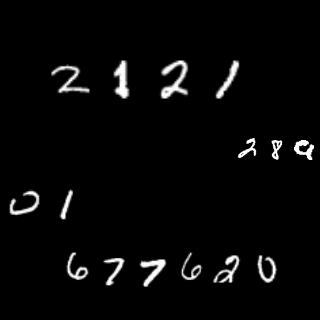 2121
289
01
677620